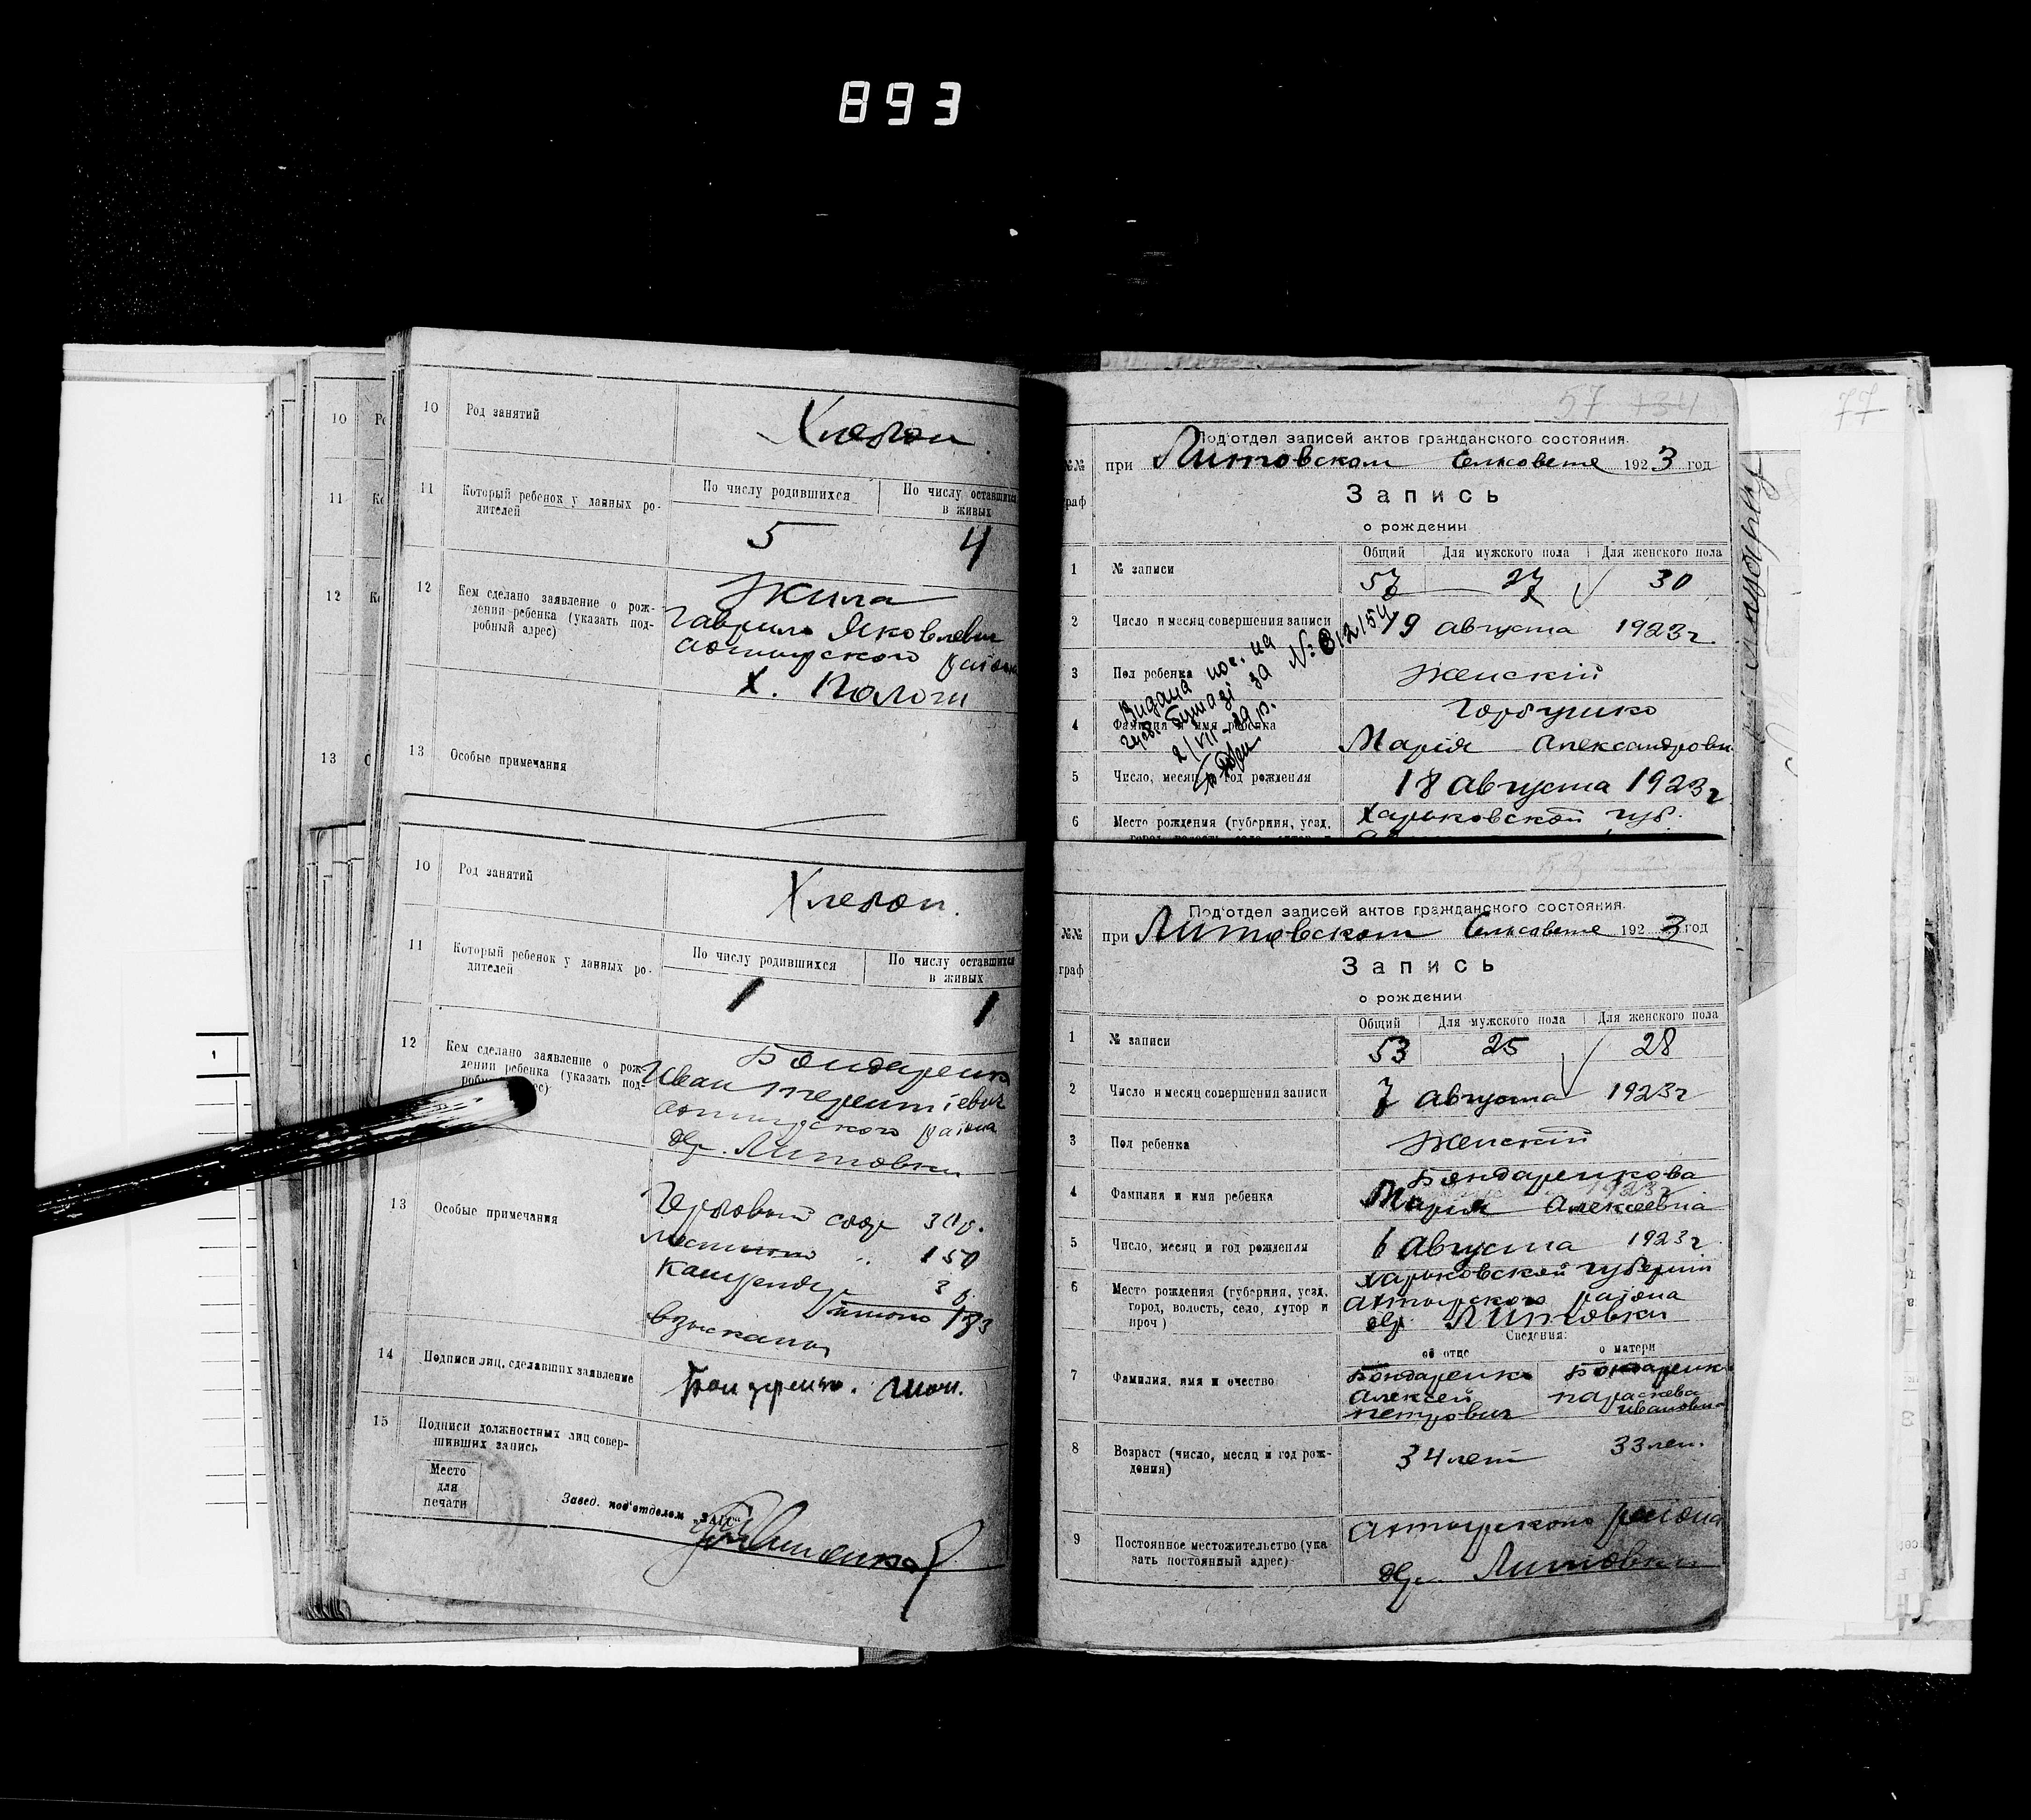 893
10 Род занятий Хлебоп
11 Который ребенок у данных родителей
По числу родившихся По числу оставшихся в живых
5 4
12 Кем сделано заявление о рождении ребенка (указать подробный адрес)
Жила
Гаврило Яковлевич
Ахтырского района
х. Пологи
13 Особые примечания
10 Род занятий Хлебоп.
11 Который ребенок у данных родителей
По числу родившихся По числу оставшихся в живых
1 1
12 Кем сделано заявление о рождении ребенка (указать подробный адрес)
Бондаренко
Иван Терентіевич
Ахтырского района
дер. Литовки
13 Особые примечания
Гербовый сбор 30 р.
местного " 150
канцеляр 3 р.
итого 183
взыскано
14 Подписи лиц, сделавших заявление
15 Подписи должностных лиц совершивших запись
Место
для
печати
Завед. под'отделом „ЗАГС"
57 134
77
Под'отдел записей актов гражданского состояния.
№№ граф
при Литовском Сельсовете 1923 год
Запись
о рождении
Общий Для мужского пола Для женского пола
1 № записи 57 27 30
2 Число и месяц совершения записи 19 августа 1923 г
3 Пол ребенка женскій
4 Фамилия и имя ребенка Горбунко
Марія Александровн
5 Число, месяц и год рождения 18 августа 1923 г
6 Место рождения (губерния, уезд, Харьковской губ.
Видана пос. на
бумазі за № 312154
2/VII-29 р.
Под'отдел записей актов гражданского состояния.
№№ граф
при Литовском Сельсовете 1923 год
Запись
о рождении
Общий Для мужского пола Для женского пола
1 № записи 53 25 28
2 Число и месяц совершения записи 7 августа 1923 г
3 Пол ребенка женскій
4 Фамилия и имя ребенка Бондаренкова
Марія Алексеевна
5 Число, месяц и год рождения 6 августа 1923 г.
6 Место рождения (губерния, уезд, город, волость, село, хутор и проч )
Харьковской губерніи
Ахтырского района
дер. Литовки
Сведения:
об отце о матери
7 Фамилия, имя и очество
Бондаренко Алексей Петрович
Бондаренк Параскева Ивановна
8 Возраст (число, месяц и год рождения) 34 лет 33 лет.
9 Постоянное местожительство (указать постоянный адрес)
Ахтырского района
дер. Литовки